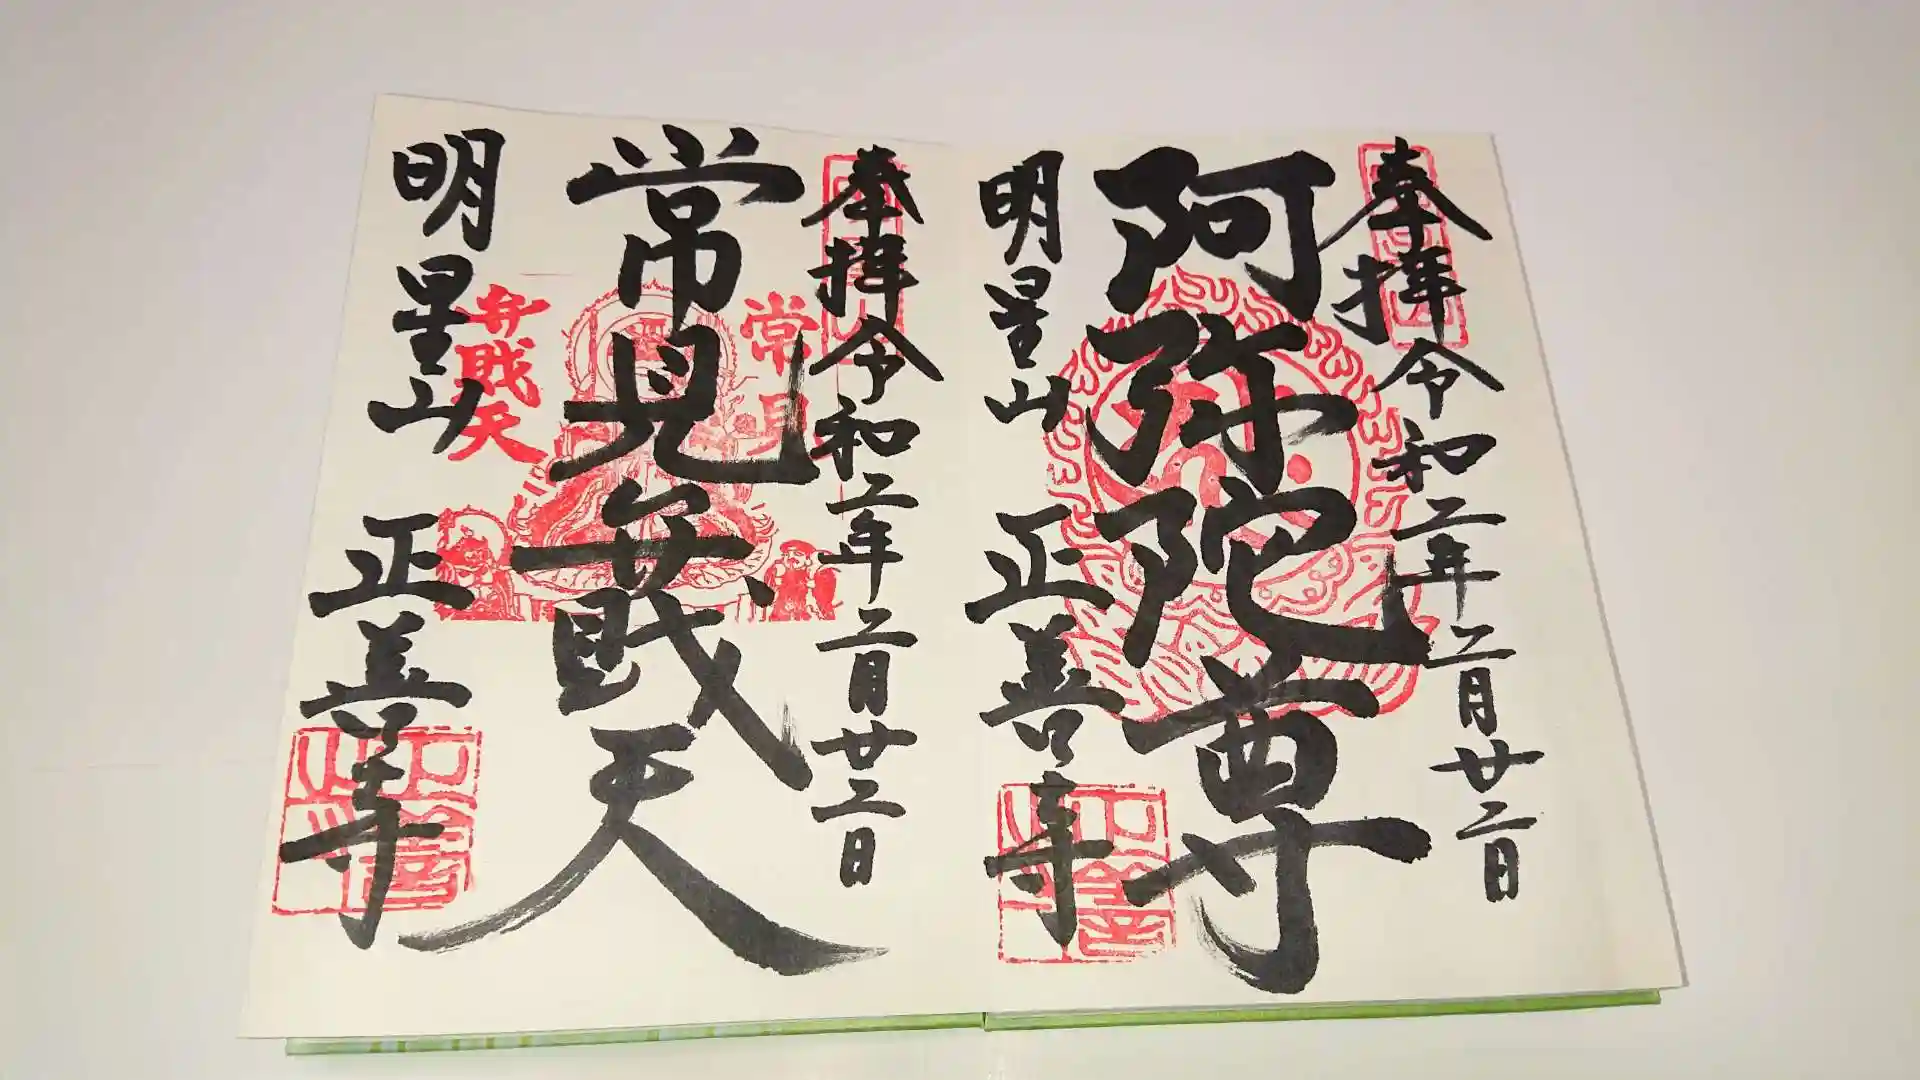 奉拝令和二年二月廿二日
阿弥陀尊
明星山 正善寺
奉拝令和二年二月廿二日
常見弁戝天
明星山 正善寺
常見
弁戝天